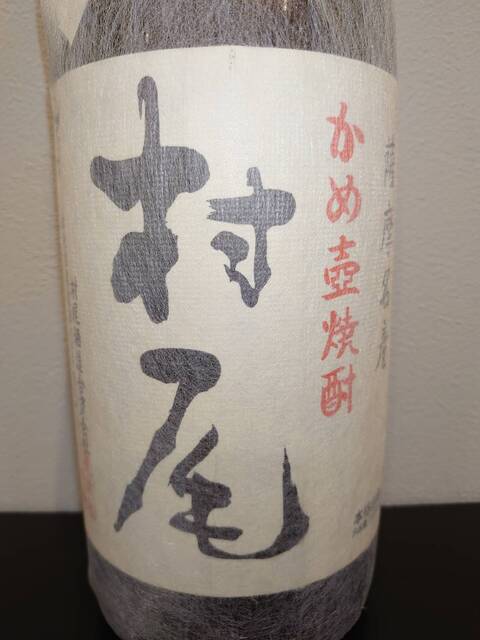 薩摩名産
かめ壺焼酎
村尾